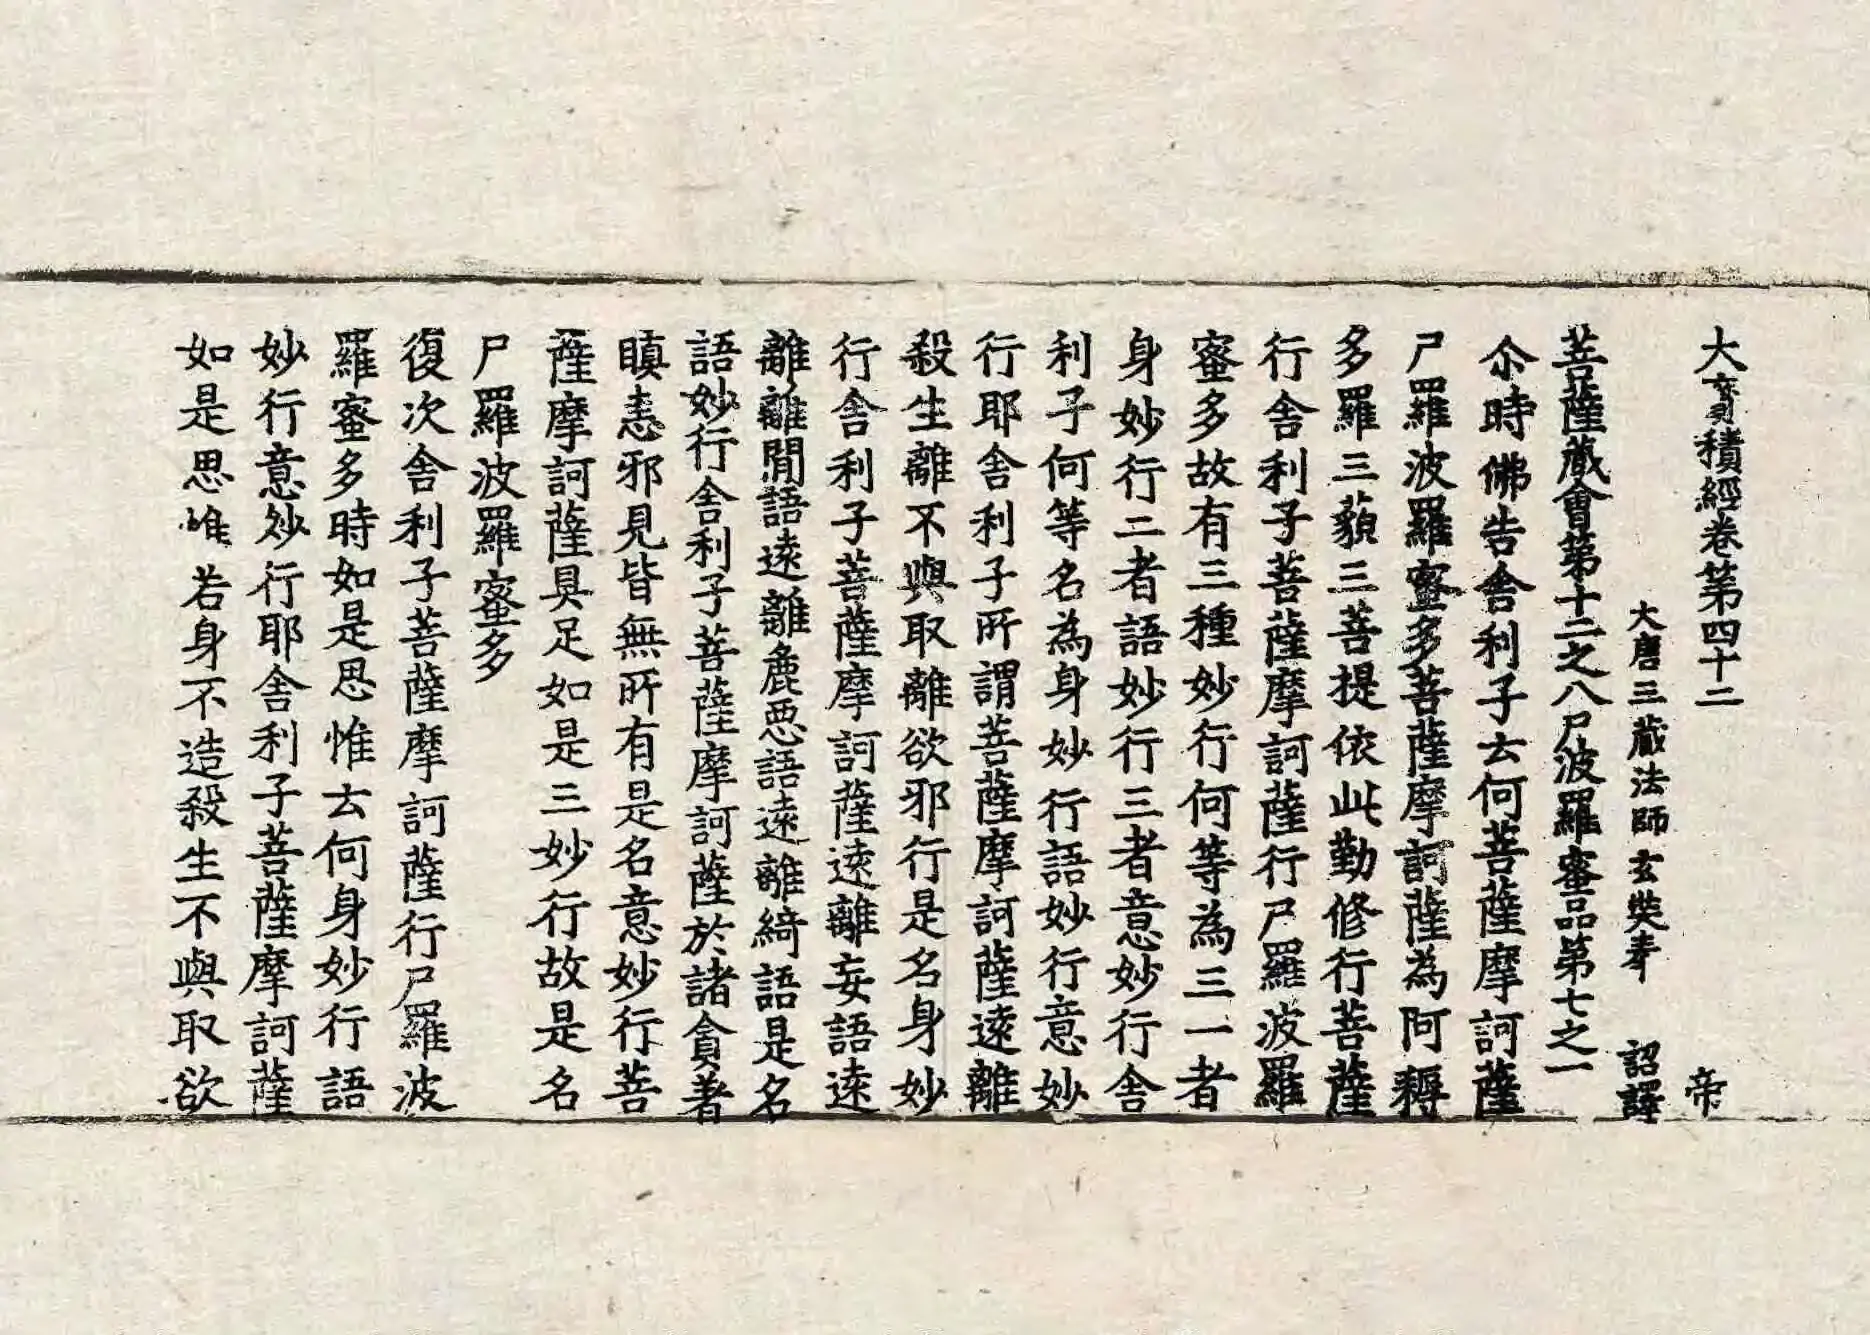 大寶積經卷第四十二 帝
大唐三藏法師玄奘奉 詔譯
菩薩藏會第十二之八尸波羅蜜品第七之一
尒時佛告舍利子云何菩薩摩訶薩
尸羅波羅蜜多菩薩摩訶薩為阿耨
多羅三藐三菩提依此勤修行菩薩
行舍利子菩薩摩訶薩行尸羅波羅
蜜多故有三種妙行何等為三一者
身妙行二者語妙行三者意妙行舍
利子何等名為身妙行語妙行意妙
行耶舍利子所謂菩薩摩訶薩遠離
殺生離不與取離欲邪行是名身妙
行舍利子菩薩摩訶薩遠離妄語遠
離離間語遠離麁惡語遠離綺語是名
語妙行舍利子菩薩摩訶薩於諸貪著
瞋恚邪見皆無所有是名意妙行菩
薩摩訶薩具足如是三妙行故是名
尸羅波羅蜜多
復次舍利子菩薩摩訶薩行尸羅波
羅蜜多時如是思惟云何身妙行語
妙行意妙行耶舍利子菩薩摩訶薩
如是思惟若身不造殺生不與取欲